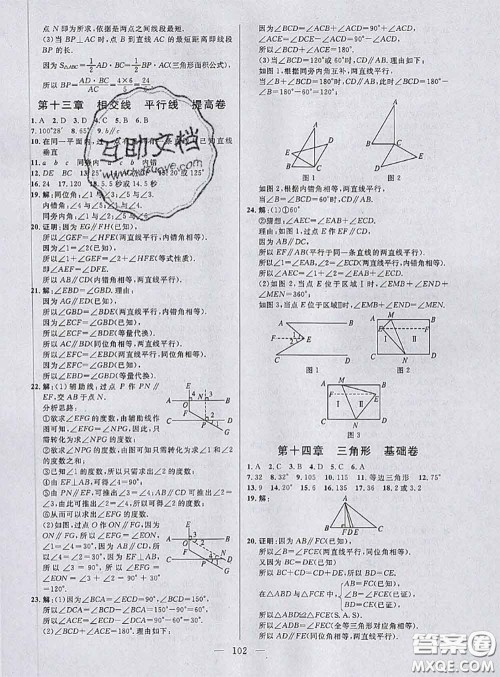 点 N 即为所求,依据是两点之间线段最短.
(3)当 BP⊥AC 时,点 B 到直线 AC 的最短距离即线段
BP 的长.
因为 S△ABC=1/2 AD·BC=1/2 AC·BP(三角形面积公式),
所以 BP=AD·BC/AC=4×6/5=24/5.
第十三章 相交线 平行线 提高卷
1. A 2. D 3. D 4. C 5. A 6. B
7. 100°28′ 8. 65° 9. b∥c
10. 在同一平面内,
垂直
11. a b c 同旁内 内错
12. DE BC
16. 24 17. 120 18. 5.5 秒或 14.5 秒
19. 解:同位角:∠1 与∠3;∠5 与∠3.
内错角:∠4 与∠5;∠1 与∠4.
同旁内角:∠1 与∠2;∠5 与∠2.
20. 证明:因为 EG∥FH(已知),
所以∠GEF=∠HFE(两直线平行,内错角相等).
所以∠1+∠GEF=∠2+∠HFE(等式性质).
即∠AEF=∠DFE.
所以 AB∥CD(内错角相等,两直线平行).
21. 证明:因为∠EBD=∠GBD,理由:
因为 AG∥BD(已知),
所以∠GBD=∠BDE(两直线平行,内错角相等).
因为∠ECF=∠GBD(已知),
所以∠ECF=∠BDE(等量代换).
所以 AC∥BD(同位角相等,两直线平行).
所以∠ECF=∠EBD(两直线平行,同位角相等).
因为∠ECF=∠GBD(已知),
所以∠EBD=∠GBD(等量代换).
22. 解:(1)辅助线:过点 P 作 PN∥
EF,交 AB 于点 N.
分析思路:
①欲求∠EFG 的度数,由辅助线
作图可知,∠EFG=∠NPG,因此,只
需转化为求∠NPG 的度数;
②欲求∠NPG 的度数,由图可知
只需转化为求∠1 和∠2 的度数
和;
③已知∠1 的度数,所以只需求出∠2 的度数;
④由已知 EF⊥AB,可得∠4=90°;
⑤由 PN∥EF,可推出∠3=∠4;由 AB∥CD 可推出
∠2=∠3,由此可推∠2=∠3=∠4,所以可得∠2 的
度数;
⑥从而可以求出∠EFG 的度数.
(2)如图,过点 O 作
ON∥FG,所以∠EFG=
∠EON,因为 ON∥FG,
所以∠1=∠ONC=30°,因为
AB∥CD,所以∠ONC=∠BON
=30°,因为 EF⊥AB,所以∠EOB
=90°.所以∠EFG=∠EON=∠EOB+∠BON=90°+30°
=120°.
23. 解:(1)因为∠BCA=∠ECD=90°,∠BCD=150°,
所以∠DCA=∠BCD-∠BCA=150°-90°=60°.
所以∠ACE=∠ECD-∠DCA=90°-60°=30°.
(2)∠BCD+∠ACE=180°.理由如下:
因为∠BCD=∠ACB+∠ACD=90°+∠ACD,
∠ACE=∠DCE-∠ACD=90°-∠ACD,
所以∠BCD+∠ACE=180°.
(3)当∠BCD=120°或 60°时,CD∥AB.
如图 1,根据同旁内角互补,两直线平行,
图 1
图 2
如图 2,根据内错角相等,两直线平行.
24. 解:(1)①60°
②猜想,∠AEC=∠EAB+∠ECD.
理由:如图 1,
因为 AB∥CD,
所以 EF∥CD(平行于同一条直线的两直线平行).
(2)如图 2,当点 E 位于区域Ⅰ时,∠EMB+∠END+
∠MEN=360°;
如图 3,当点 E 位于区域Ⅱ时,∠EMB+∠END=
∠MEN.
图 1
图 2
图 3
第十四章 三角形 基础卷
1. A 2. C 3. B 4. D 5. C 6. A
19. 解:
20. 证明:因为 AB∥FC(已知),
所以∠B=∠FCE(两直线平行,同位角相等).
又因为 BC=DE(已知),
所以 BC+CD=CD+DE,即 BD=CE.
在△ABD 与△FCE 中,
AB=FC(已知),
∠B=∠FCE(已证),
BD=CE(已证),
所以△ABD≌△FCE(S.A.S).
所以∠ADB=∠E(全等三角形对应角相等).
所以 AD∥FE(同位角相等,两直线平行).
— 102 —
互助文档
答案圈
MXQE.COM